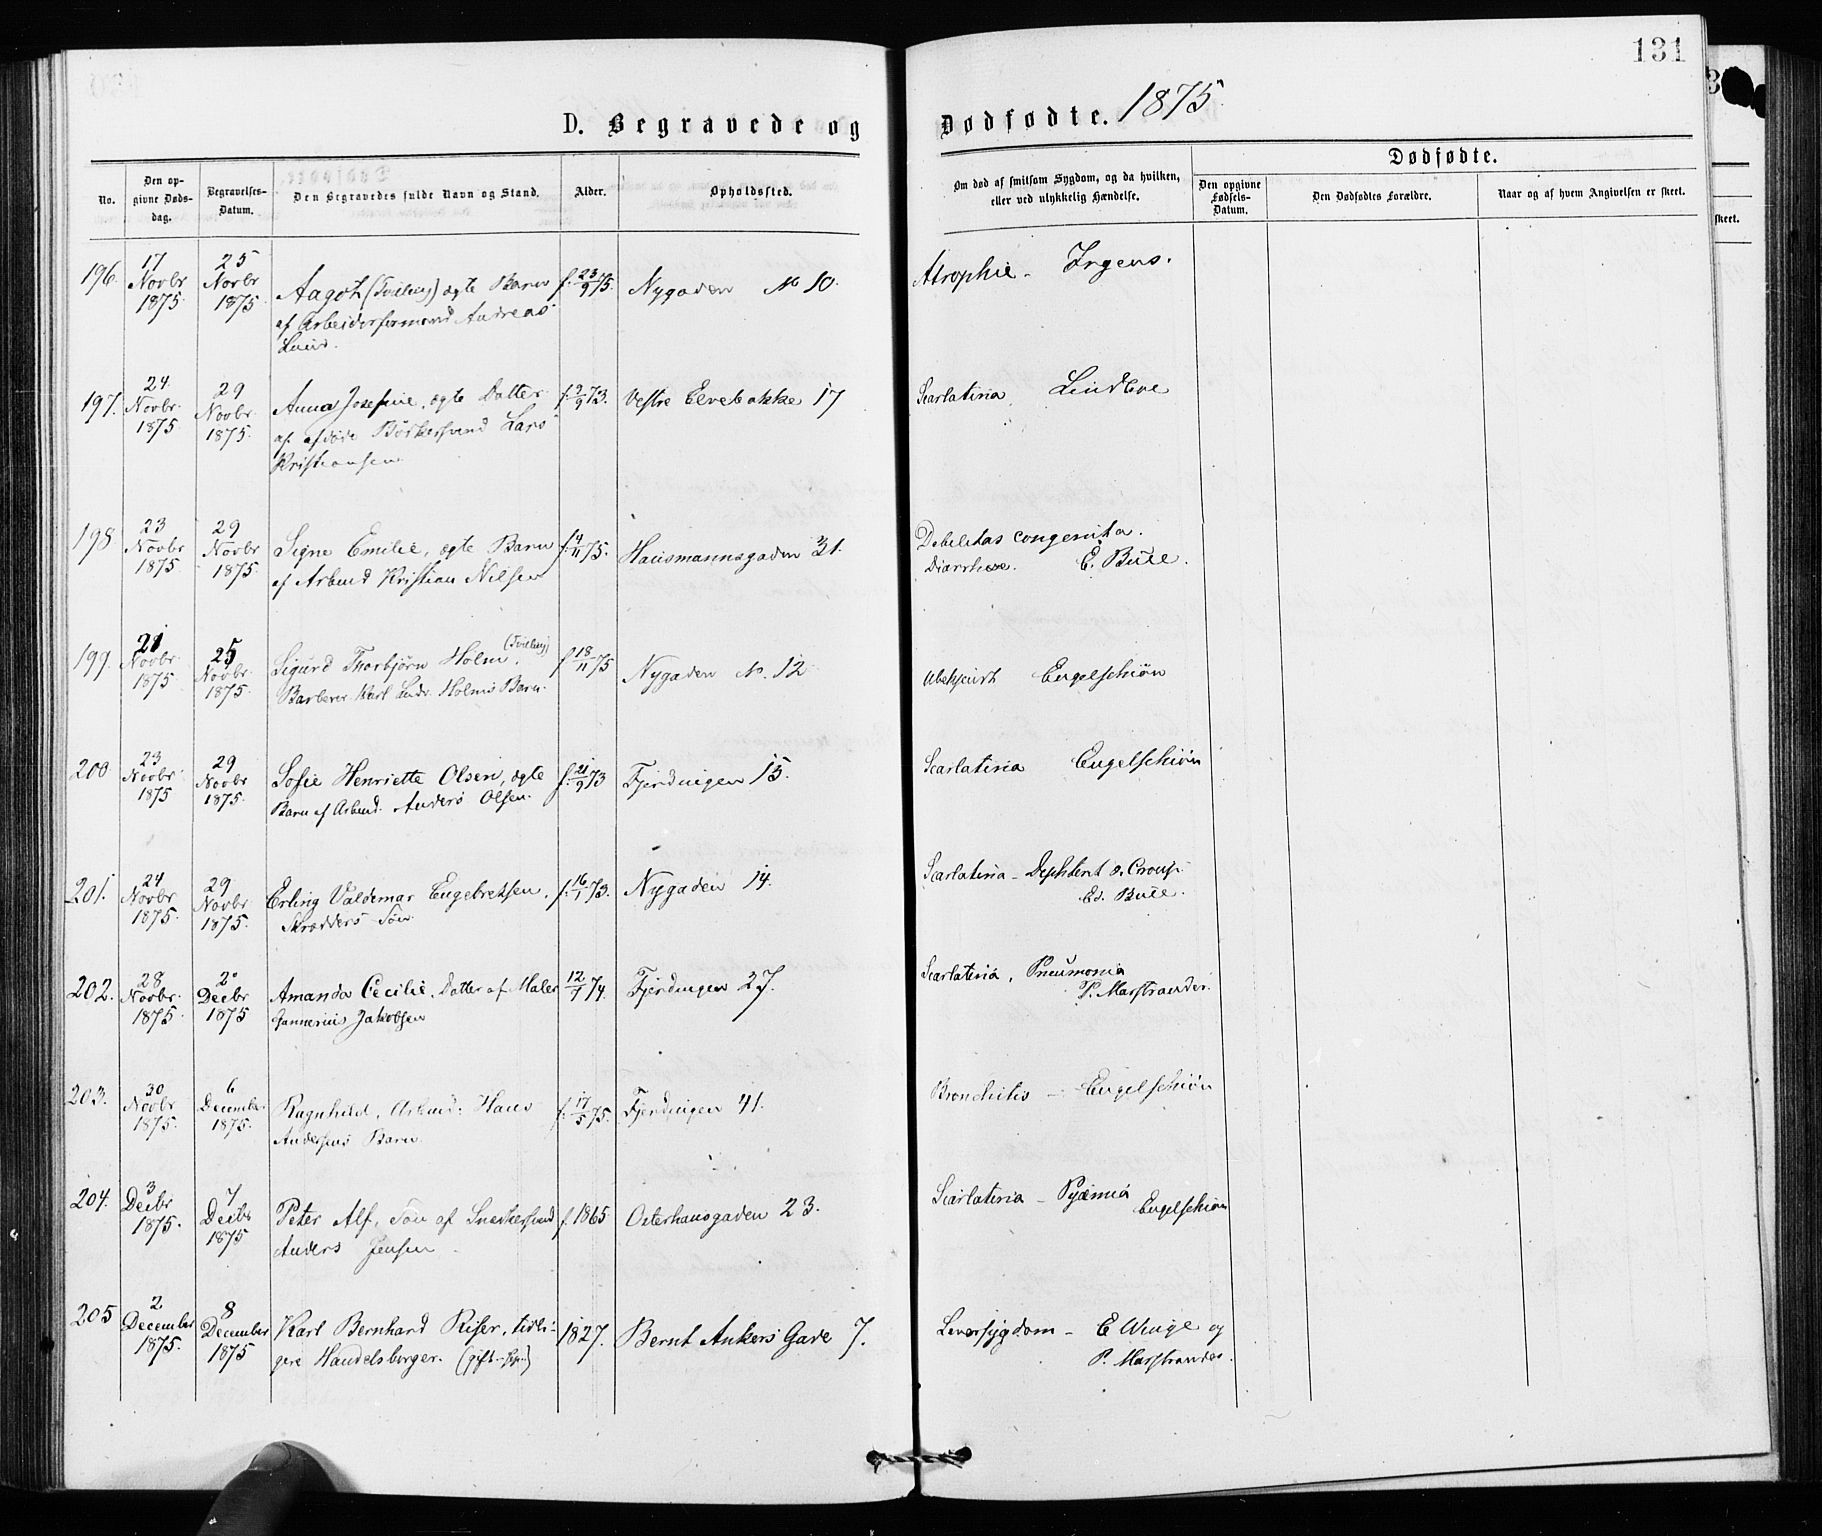 131
D. Begravede og Dødfødte. 1875
No.
Den opgivne Dødsdag.
Begravelses-Datum.
Den Begravedes fulde Navn og Stand.
Alder.
Opholdssted.
Om død af smitsom Sygdom, og da hvilken, eller ved ulykkelig Hændelse.
Dødfødte.
Den opgivne Fødsels-Datum.
Den Dødfødtes Forældre.
Naar og af hvem Angivelsen er skeet.
skeet.
196. 17 Novbr 1875 25 Novbr 1875 Aagoth (Tvilling) ægte Barn f. 23/9 75. Nygaden No 10. Atrophie - Irgens.
af Arbeidsformand Andreas
Lund.
197. 24 Novbr. 1875 29 Novbr 1875. Anna Josefine, ægte Datter f. 2/9 73. Vestre Elvebakke 17 Scarlatina, Lindboe
af afdøde Bødkersvend Lars
Kristiansen
198 23 Novbr 1875 29 Novbr 1875. Signe Emilie, ægte Barn f. 4/11 75. Hausmannsgaden 31. Debilitas congenita.
af Arbmd Kristian Nilsen Diarrhoe. E. Bull.
199. 21 Novbr. 1875 25 Novbr. 1875. Sigurd Thorbjørn Holm (Tvilling), f. 18/11 75 Nygaden No. 12 Ubekjendt Engelschiøn
Barberer Karl Ludv. Holms Barn.
200 23 Novbr 1875 29 Novbr 1875. Sofie Henriette Olsen, ægte f. 21/9 73 Fjerdingen 15. Scarlatina Engelschiøn
Barn af Arbmd. Anders Olsen.
201. 24 Novbr. 1875. 29 Novbr. 1875. Erling Valdemar Engebretsen, f. 16/1 73. Nygaden 14. Scarlatina - Dephterit o. Croup.
Skrædders Søn Ed. Bull.
202. 28 Novbr. 1875 2 Decbr 1875 Amanda Cecilie, Datter af Maler 12/7 74. Fjerdingen 27. Scarlatina, Pneumonia
Jakobsen P. Marstrander.
203. 30 Novbr 1875. 6 December 1875. Ragnhild, Arbmd. Hans f. 17/5 75. Fjerdingen 41. Bronchitis - Engelschiøn
Andersens Barn
204. 3 Decbr 1875. 7 Decbr 1875 Peter Alf, Søn af Snedkersvend f. 1865 Osterhausgaden 23. Scarlatina - Pyæmia
Anders Jensen Engelschiøn
205 2 December 1875. 8 December 1875 Karl Bernhard Riser, tidli- 1827. Bernt Ankers Gade 7. Leversygdom - E Winge og
gere Handelsborger. P. Marstrander.